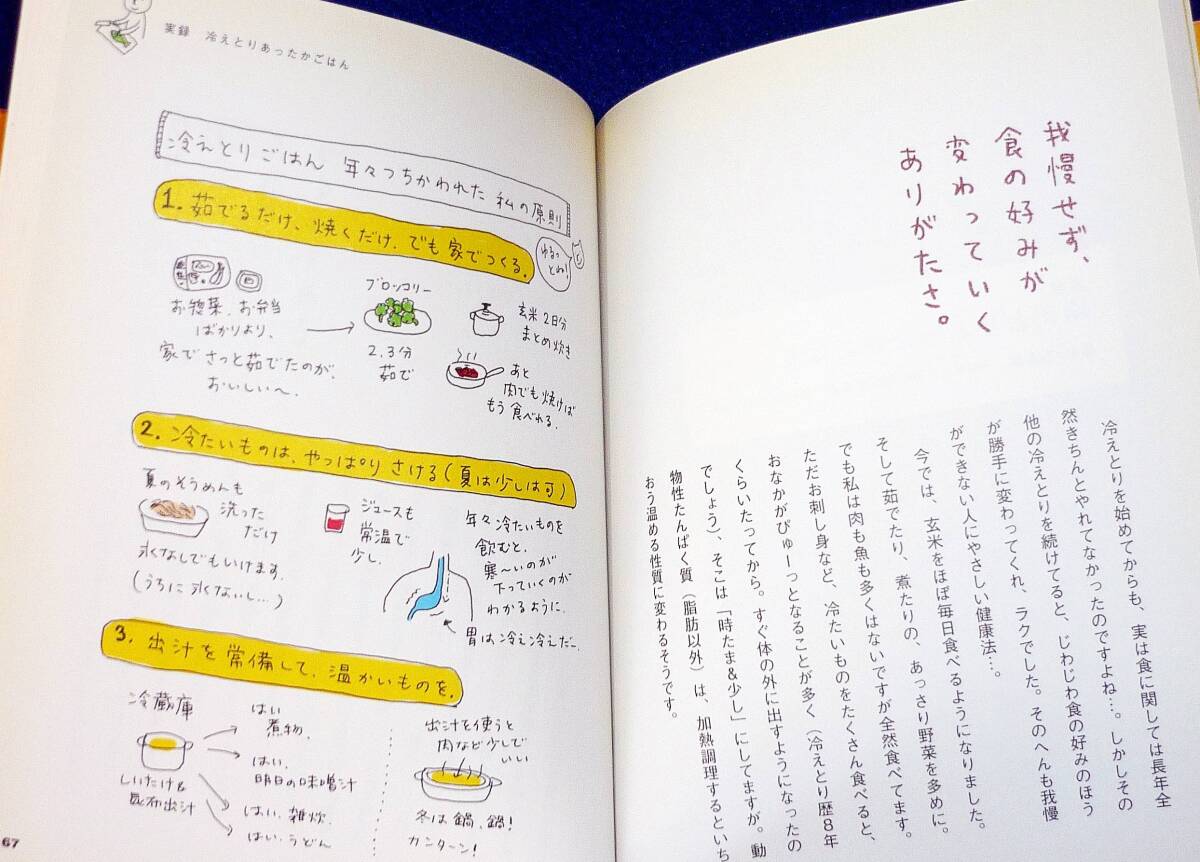 我慢せず、
食の好みが
変わっていく
ありがたさ。
冷えとりを始めてからも、実は食に関しては長年全
然きちんとやれてなかったのですよね…。しかしその
他の冷えとりを続けてると、じわじわ食の好みのほう
が勝手に変わってくれ、ラクでした。そのへんも我慢
ができない人にやさしい健康法…。
今では、玄米をほぼ毎日食べるようになりました。
そして茹でたり、煮たりの、あっさり野菜を多めに。
でも私は肉も魚も多くはないですが全然食べてます。
ただお刺し身など、冷たいものをたくさん食べると、
おなかがぴゅーっとなることが多く（冷えとり歴8年
くらいたってから。すぐ体の外に出すようになったの
でしょう）、そこは「時たま&少し」にしてますが。動
物性たんぱく質（脂肪以外）は、加熱調理するといち
おう温める性質に変わるそうです。
実録 冷えとりあったかごはん
冷えとりごはん 年々つちかわれた 私の原則
1. 茹でるだけ、焼くだけ、でも家でつくる。
ゆるっ
とね!
お惣菜、お弁当
ばかりより、
家でさっと茹でたのが、
おいしい〜。
ブロッコリー
2、3分
茹で
玄米2日分
まとめ炊き
あと
肉でも焼けば
もう食べれる。
2. 冷たいものは、やっぱりさける(夏は少しは可)
夏のそうめんも
洗った
だけ
氷なしでもいけます。
(うちに氷ないし…)
ジュースも
常温で
少し。
年々冷たいものを
飲むと、
寒〜いのが
下っていくのが
わかるように。
胃は冷え冷えだ…
3. 出汁を常備して、温かいものを。
冷蔵庫
しいたけ&
昆布出汁
はい
煮物。
はい、
明日の味噌汁
はい、雑炊。
はい、うどん
出汁を使うと
肉など少しで
いい
冬は鍋、鍋!
カンターン!
67